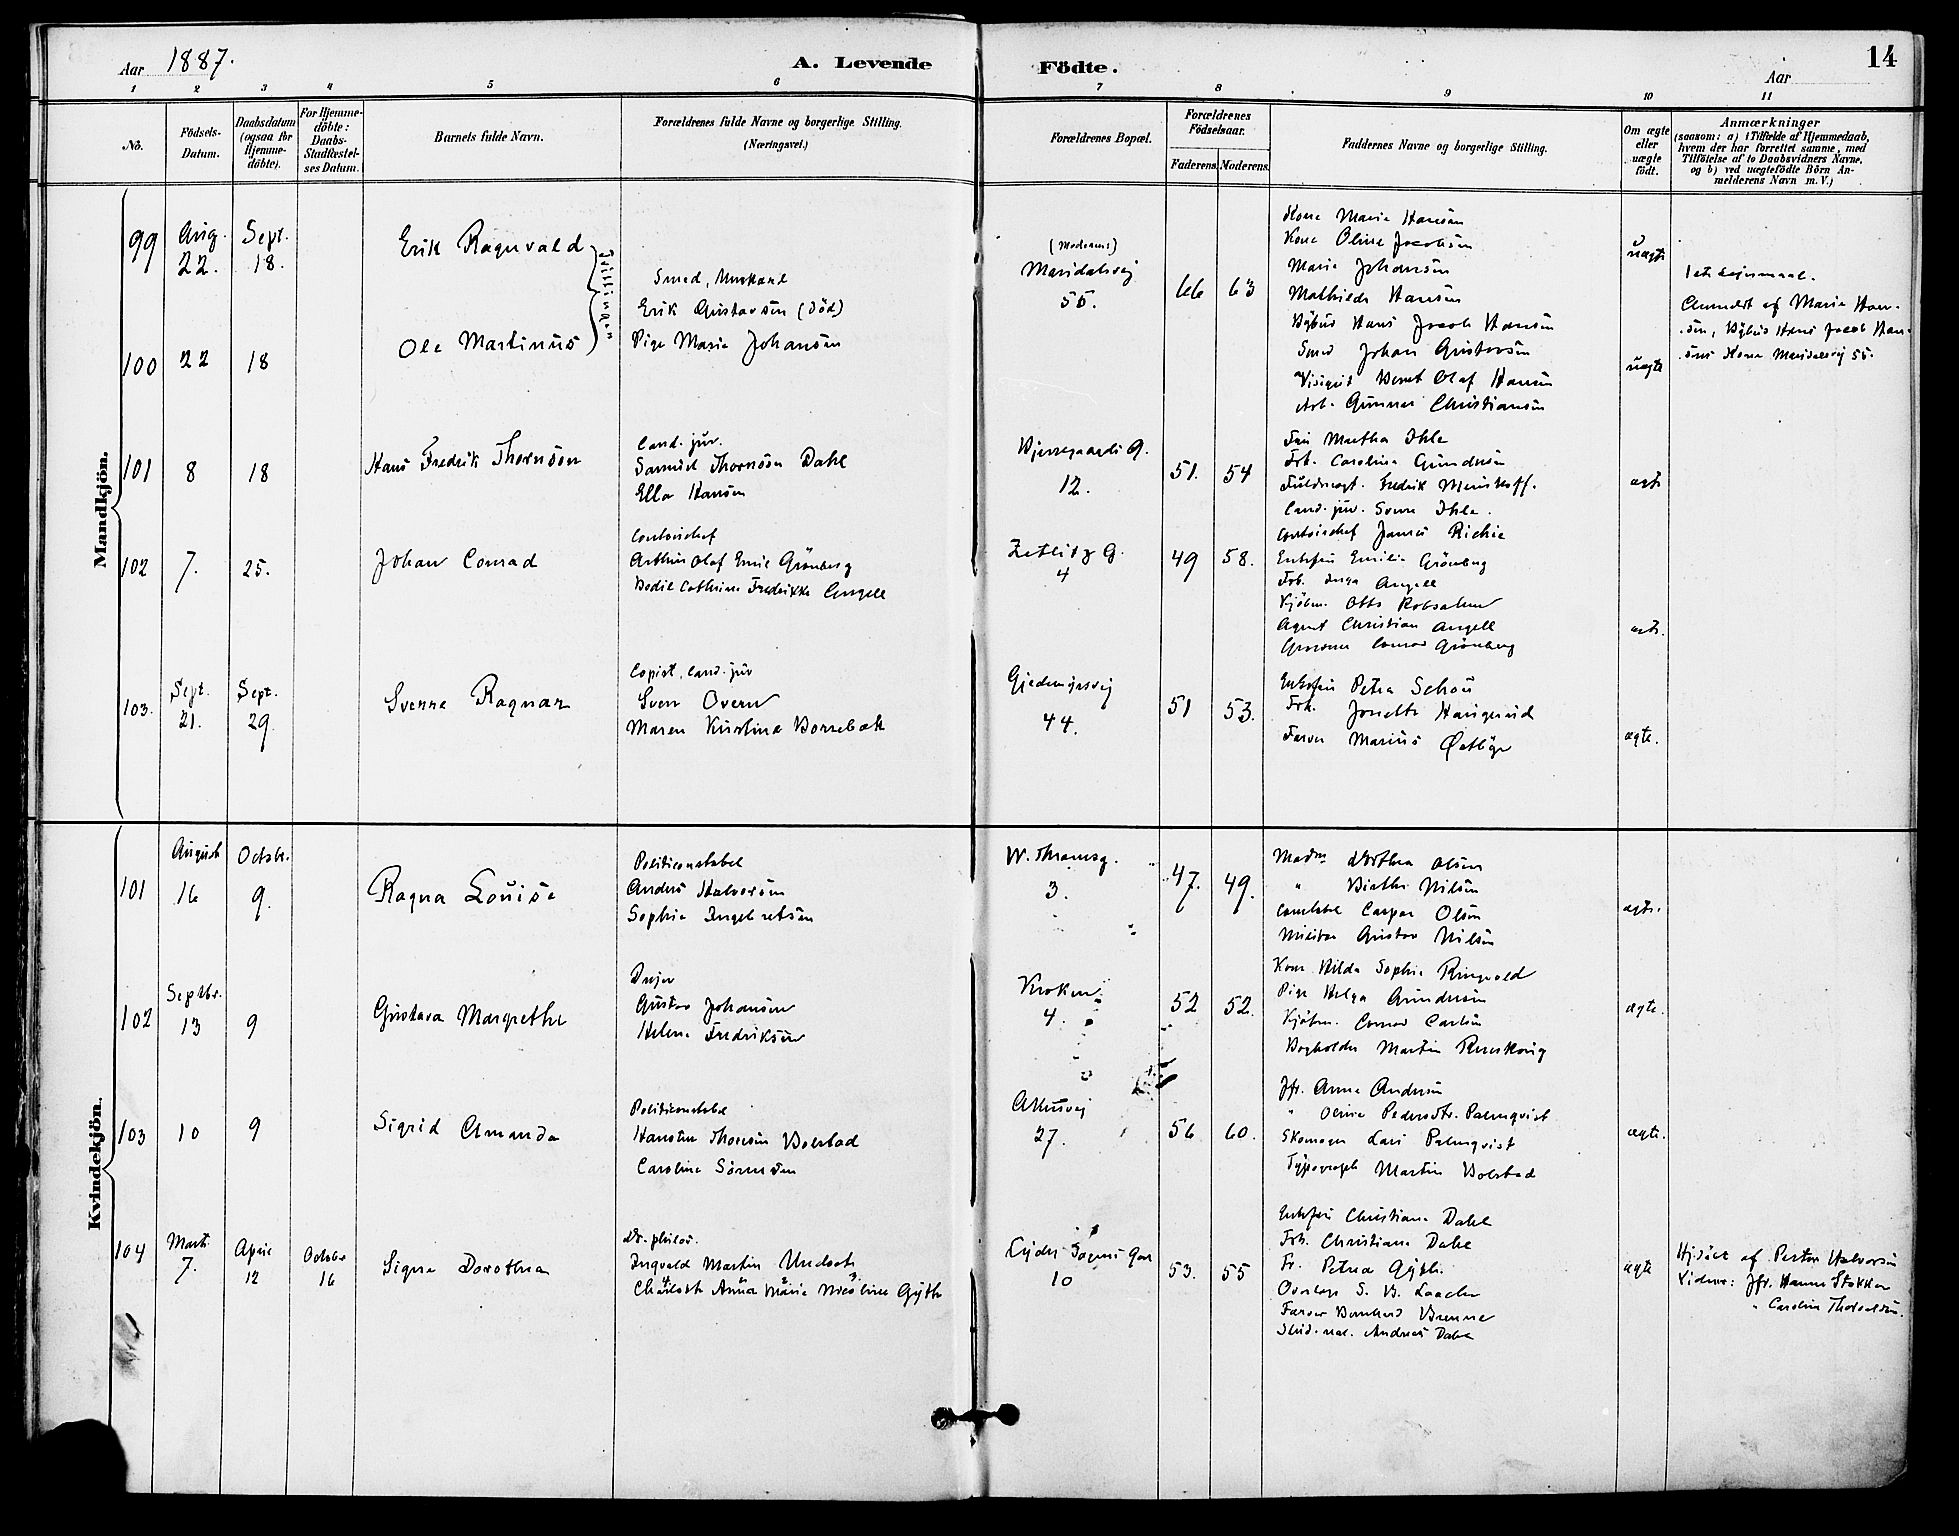 Aar 1887.
A. Levende Födte.
Aar
14
1 2 3 4 5 6 7 8 9 10 11
No.
Födsels-
Datum.
Daabsdatum
(ogsaa for
Hjemme-
döbte).
For Hjemme-
döbte:
Daabs-
Stadfæstel-
ses Datum.
Barnets fulde Navn.
Forældrenes fulde Navne og borgerlige Stilling.
(Næringsvei.)
Forældrenes Bopæl.
Forældrenes
Födselsaar.
Faderens. Moderens.
Faddernes Navne og borgerlige Stilling.
Om ægte
eller
uægte
födt.
Anmærkninger
(saasom: a) i Tilfælde af Hjemmedaab,
hvem der har forrettet samme, med
Tilföielse af to Daabsvidners Navne,
og b) ved uægtefödte Börn An-
melderens Navn m. V.)
Mandkjön.
99
Aug.
22.
Sept.
18.
Erik Ragnvald
Tvillinger
Smed,
Erik Gustavsen (död)
Pige Marie Johansen
(Moderens)
Maridalsvej
55.
66 63
Kone Marie Hansen
Kone Oline Jacobsen
Marie Johansen
Mathilde Hansen
Bybud Hans Jacob Hansen
Smed Johan Gustavsen
Bernt Olaf Hansen
Arb. Gunnar Christiansen
uægte
1ste Leiermaal.
Anmeldt af Marie Han-
sen, Bybud Hans Jacob Han-
sens Kone Maridalsvej 55.
100
22
18
Ole Martinus
uægte
101
8
18
Hans Fredrik Thornsön
Cand. jur.
Samuel Thornsön Dahl
Ella Hansen
Bjerregaards G.
12.
51. 54
Fru Martha Ihle
Frk. Caroline Gundersen
Fuldmægt. Fredrik
Cand. jur. Svenn Ihle.
ægte
102
7.
25.
Johan Conrad
Contoirchef
Arthur Olaf Emil Grönberg
Bodil Cathrine Fredrikke Angell
Zetlitz G.
4
49 58.
Contoirchef James Richie
Enkefru Emilie Grönberg
Frk. Inga Angell
Kjöbm. Otto Robsahm
Agent Christian Angell
Grosserer Conrad Grönberg
ægte.
103.
Sept.
21.
Sept.
29
Sverre Ragnar
Copist, Cand. jur
Sven Overn
Maren Kristine Borrebæk
Gjedemyrsvej
44.
51 53.
Enkefru Petra Schou
Frk. Josette Haugerud
Farver Marius
ægte.
Kvindekjön.
101
August
16
Octobr.
9.
Ragna Louise
Politiconstabel
Anders Halvorsen
Sophie Ingebretsen
W. Thranesg.
3.
47. 49.
Madm Dorthea Olsen
" Birthe Nilsen
Constabel Casper Olsen
Gustav Nilsen
ægte.
102
Septbr.
13
9
Gustava Margrethe
Drejer
Gustav Johansen
Helene Fredriksen
Kroken
4.
52 52.
Kone Hilda Sophie Ringvold
Pige Helga Gundersen
Kjöbm. Conrad Carlsen
Bogholder Martin
ægte.
103
10
9
Sigrid Amanda
Politiconstabel
Thorsen Bolstad
Caroline Sörensen
Akersvej
27.
56 60.
Jfr. Anna Andersen
" Oline Pedersdtr. Palmqvist
Skomager Lars Palmqvist
Typograph Martin Bolstad
ægte.
104
Marts
7.
April
12
October
16
Signe Dorothea
Dr. philos.
Ingvald Martin Undset
Charlotte Anna Marie Nicoline Gyth
Lyder Sagens Gad
10
53. 55
Enkefru Christiane Dahl
Frk. Christiane Dahl
Fr. Petrea Gyth
Overlæge S. B. Laache
Farver Bernhard Brenne
Stud. real. Andreas Dahl
ægte
Hjdöbt af Pastor Halvorsen
Vidner: Jfr. Hanne Stokke
" Caroline Thorvaldsen.